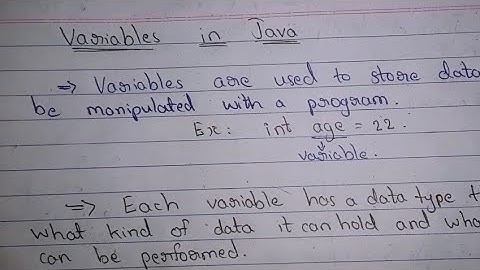 Variables in Java
⇒ Variables are used to store data
be manipulated with a program.
Ex: int age = 22.
variable.
⇒ Each variable has a data type t
what kind of data it can hold and wha
can be performed.